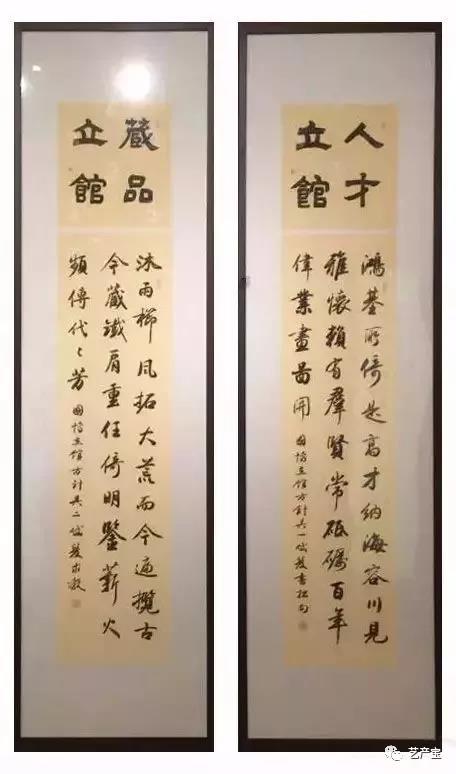 人才
立館
鴻基所倚是高才納海容川見
雅懷賴有羣賢常砥礪百年
偉業畫圖開 國博立館方針其一 書拙句
藏品
立館
沐雨櫛風拓大荒而今遍攬古
今藏鐵肩重任倚明鑒薪火
頻傳代々芳 國博立館方針其二 求教
艺产宝